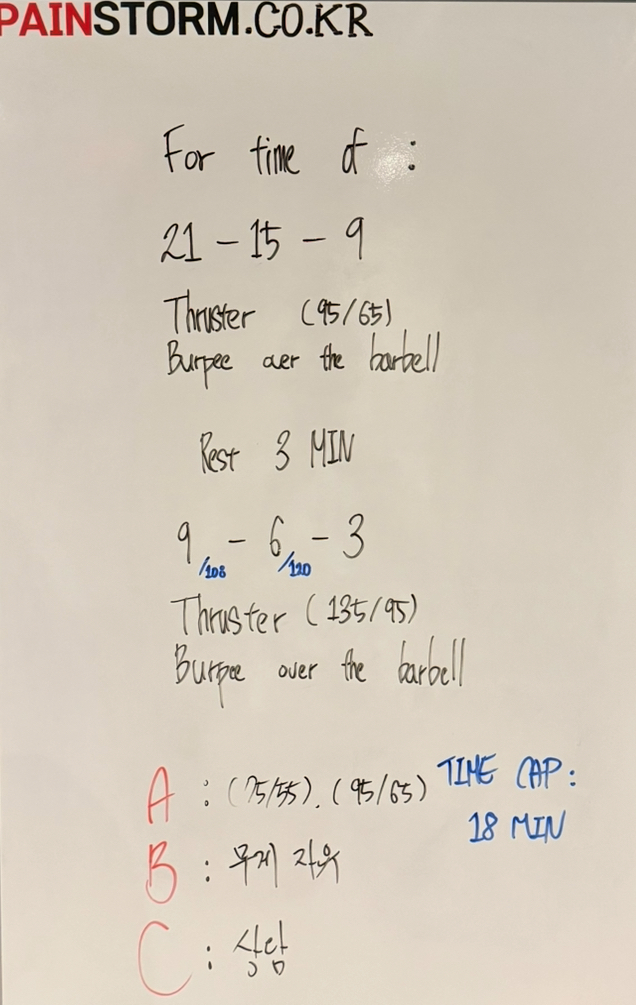 PAINSTORM.CO.KR
For time of :
21 - 15 - 9
Thruster (95/65)
Burpee over the barbell
Rest 3 MIN
9 /108 - 6 /120 - 3
Thruster (135/95)
Burpee over the barbell
A : (75/55). (95/65)
TIME CAP :
18 MIN
B : 무게 자유
C : 상담